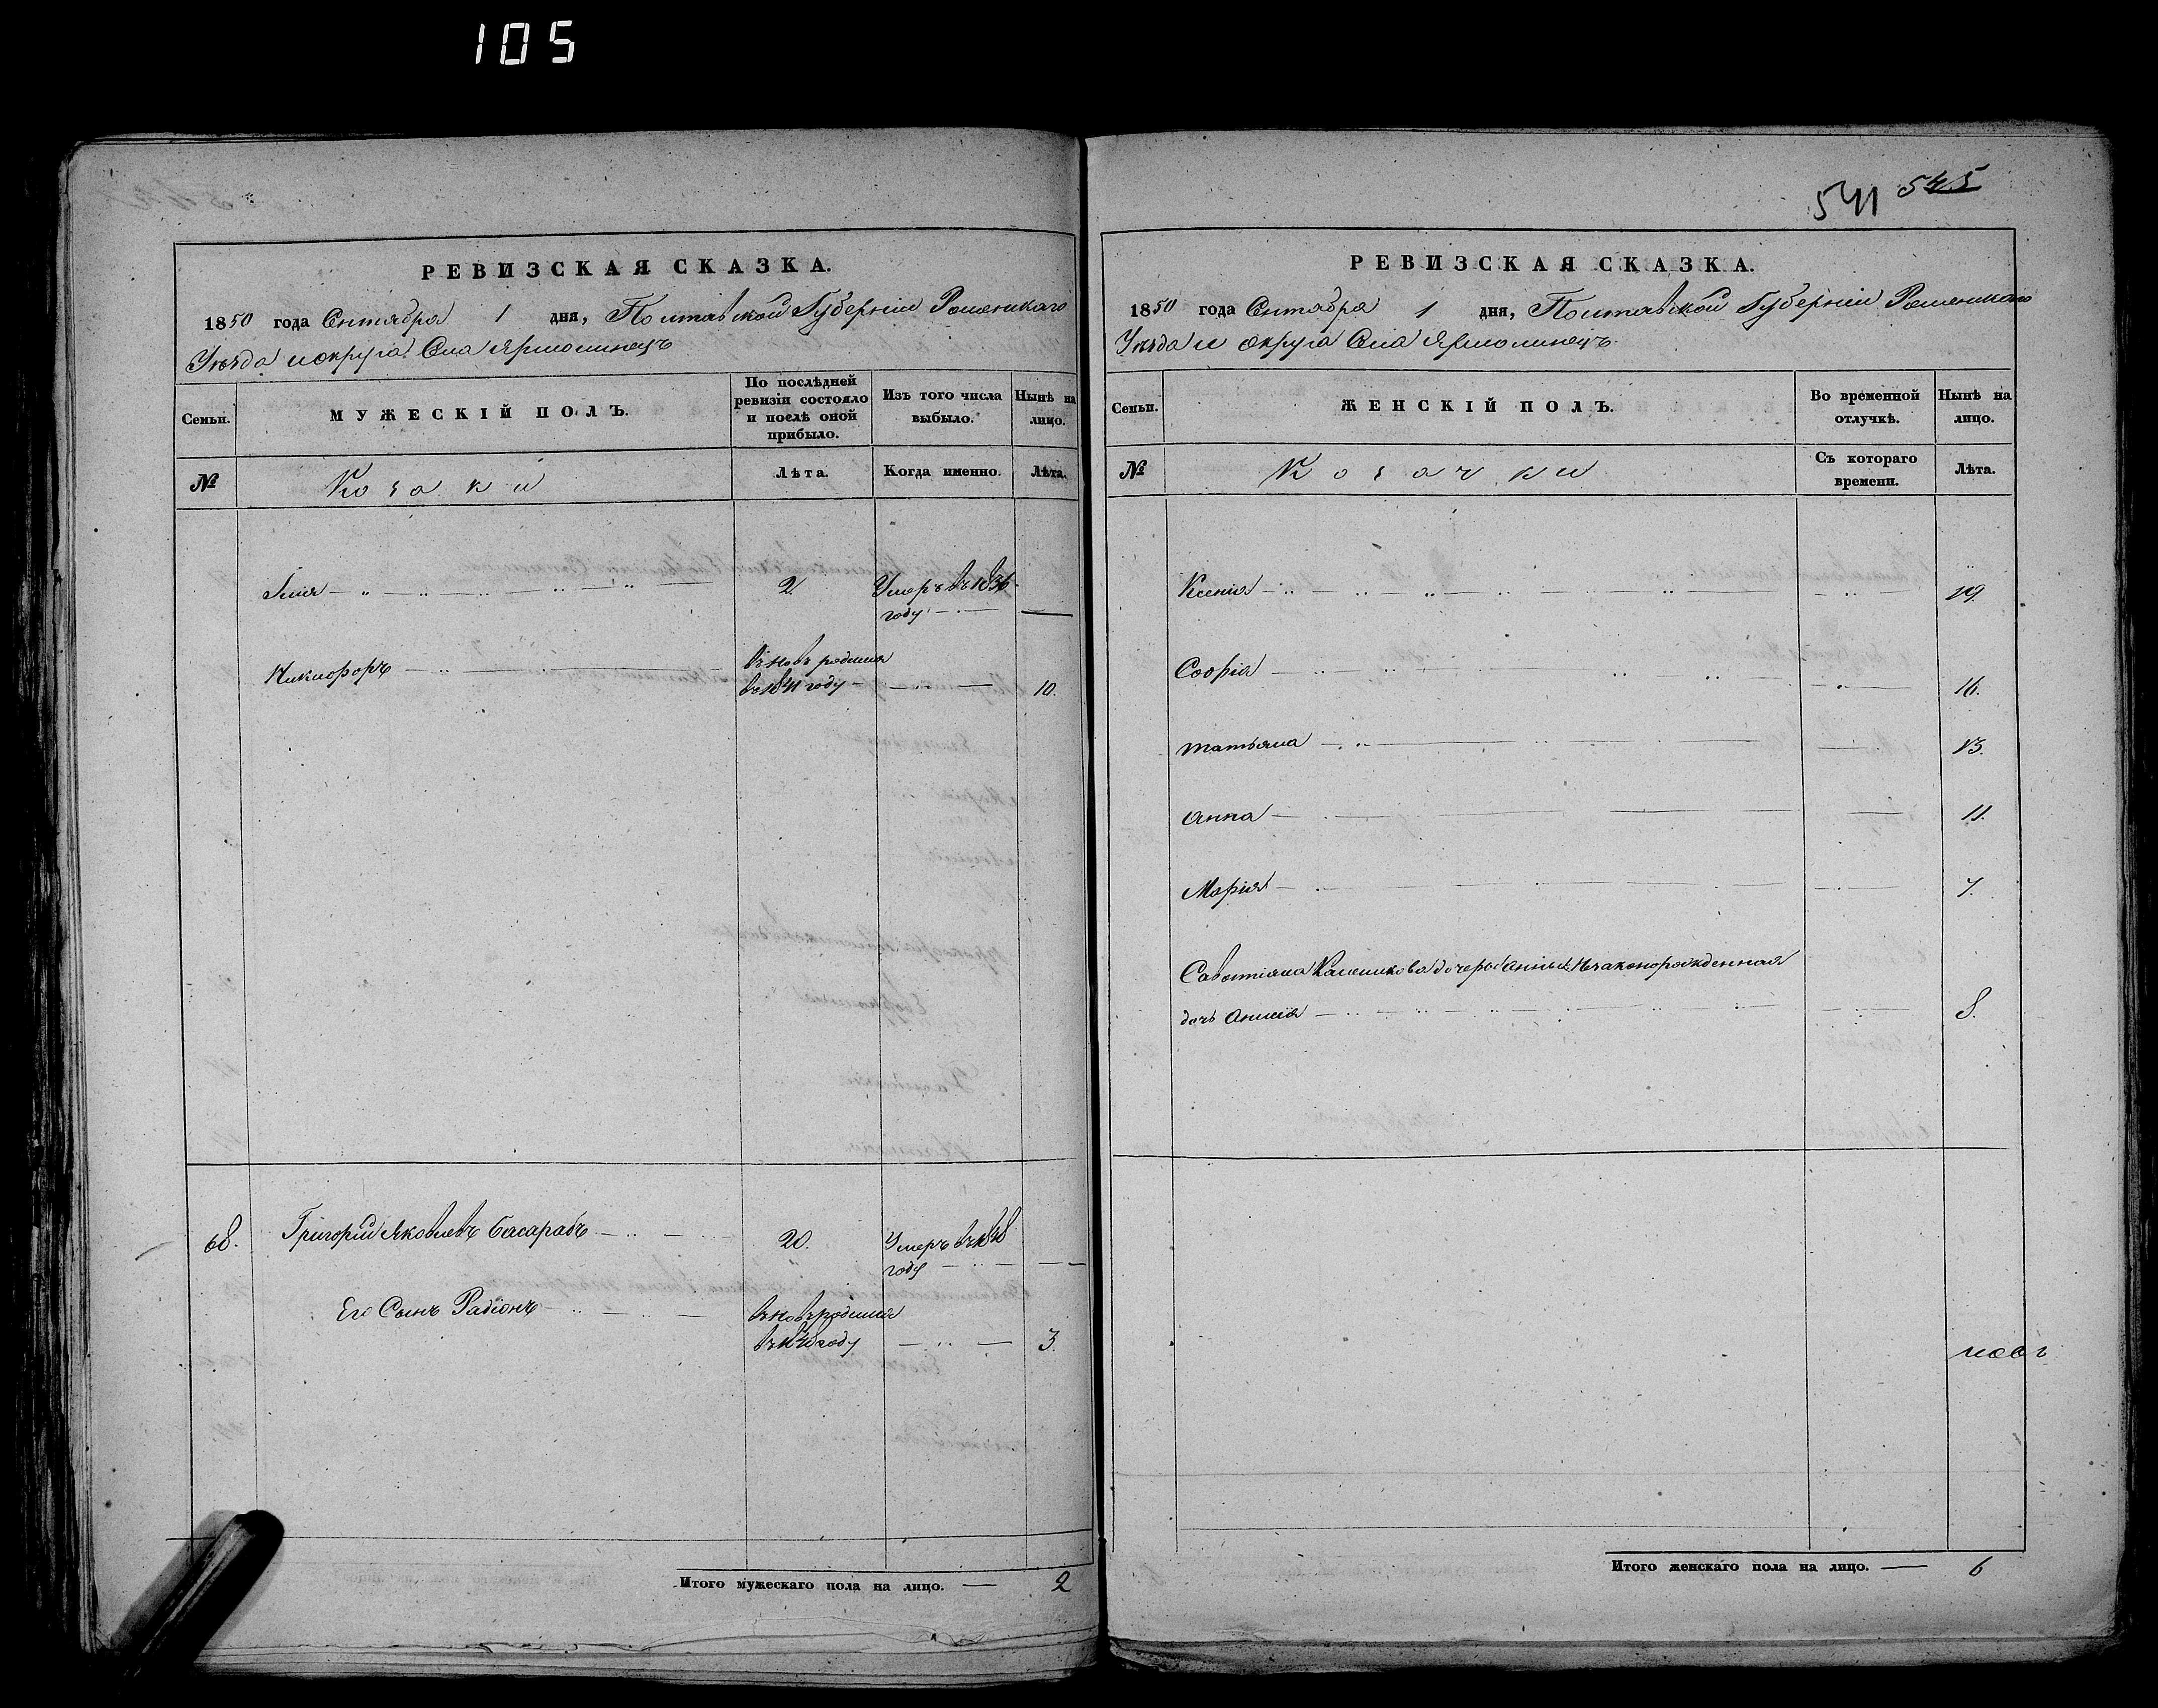 105
541 545
РЕВИЗСКАЯ СКАЗКА.
1850 года Сентября 1 дня, Полтавской Губерніи Роменскаго
Уѣзда и округа Села Ярмолинецъ
Семьи.
МУЖЕСКІЙ ПОЛЪ.
По послѣдней ревизіи состояло и послѣ оной прибыло.
Изъ того числа выбыло.
Нынѣ на лицо.
№
Козаки
Лѣта.
Когда именно.
Лѣта.
Илія 2. Умеръ въ 1836
году
Никифоръ вновь родился
въ 1841 году 10.
68. Григорій Яковлевъ Басарабъ 20. Умеръ въ 1848
году
Его Сынъ Радіонъ вновь родился
году 3.
Итого мужескаго пола на лицо. — 2
РЕВИЗСКАЯ СКАЗКА.
1850 года Сентября 1 дня, Полтавской Губерніи Роменскаго
Уѣзда и округа Села Ярмолинецъ
Семьи.
ЖЕНСКІЙ ПОЛЪ.
Во временной отлучкѣ.
Нынѣ на лицо.
№
Козачки
Съ котораго времени.
Лѣта.
Ксенія 19.
Софія 16.
Татьяна 13.
Анна 11.
Марія 7.
Незаконорожденная
дочь 8.
Итого женскаго пола на лицо. — 6